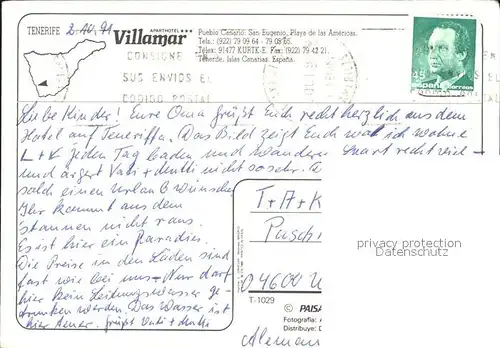 TENERIFE
2.10.91
APARTHOTEL ***
Villamar
Pueblo Canario. San Eugenio, Playa de las Américas.
Tels.: (922) 79 09 64 - 79 08 65.
Télex: 91477 KURTK-E. Fax: (922) 79 42 21.
Tenerife, Islas Canarias, España.
CONSIGNE EN
SUS ENVIOS E
CODIGO POSTAL
45
España correos
Liebe Kinder! Eure Oma grüßt Euch recht herzlich aus dem
Hotel auf Teneriffa. Das Bild zeigt Euch wo ich wohne
L + K jeden Tag baden und wandern. Spart recht viel
und ärgert Vati + Mutti nicht so sehr.
solch einen Urlaub wünsche
Ihr kommt aus dem
staunen nicht raus.
Es ist hier ein Paradies.
Die Preise in den Läden sind
fast wie bei uns - Nur darf
hier kein Leitungswasser ge-
trunken werden. Das Wasser ist
hier teuer. Grüßt Vati + Mutti
T + A + K
Pasch
D 4600
Aleman
T-1029
© PAISA
Fotografía: A
Distribuye: D
privacy protection
Datenschutz